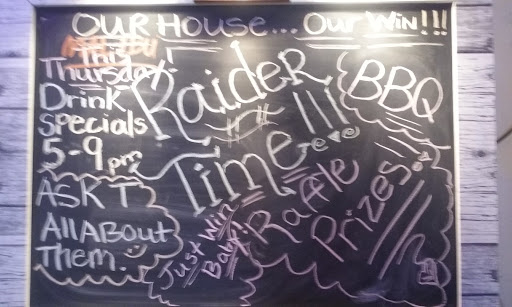 OUR HOUSE... OUR WIN!!!
Thursday!
Drink
Specials
5-9pm
ASK T
All ABout
Them.
Raider
Time!!!
BBQ
Raffle
Prizes!
Just Win
Baby!